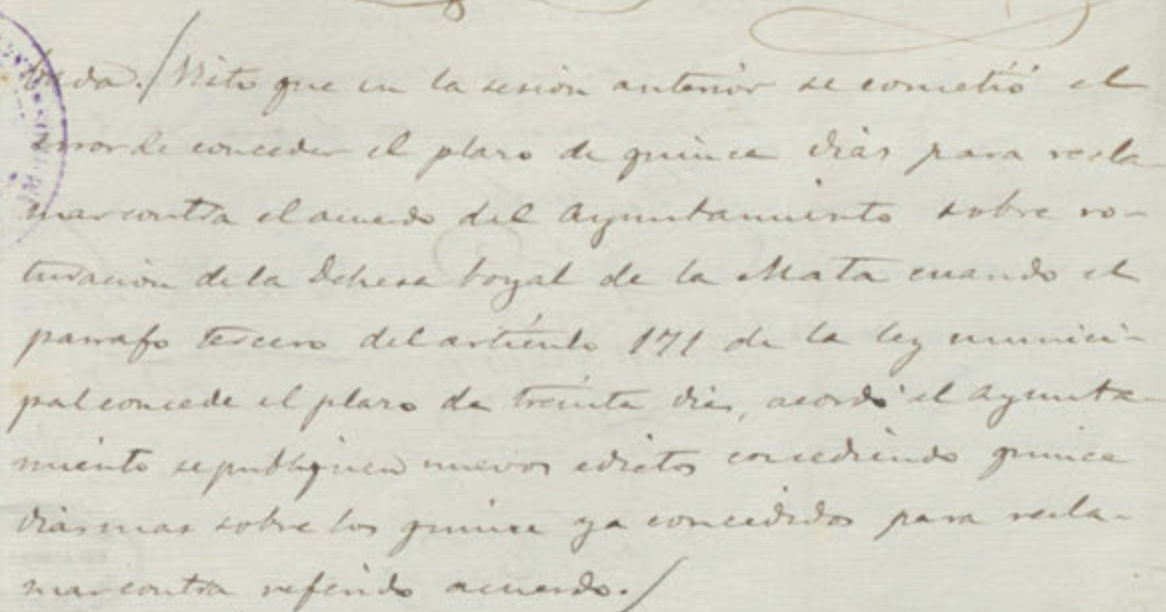 bada./Visto que en la sesion anterior se cometió el
error de conceder el plazo de quince dias para recla-
mar contra el acuerdo del Ayuntamiento sobre ro-
turacion de la Dehesa boyal de la Mata cuando el
parrafo tercero del artículo 171 de la ley munici-
pal concede el plazo de treinta dias, acordó el Ayunta-
miento se publiquen nuevos edictos concediendo quince
dias mas sobre los quince ya concedidos para recla-
mar contra referido acuerdo./